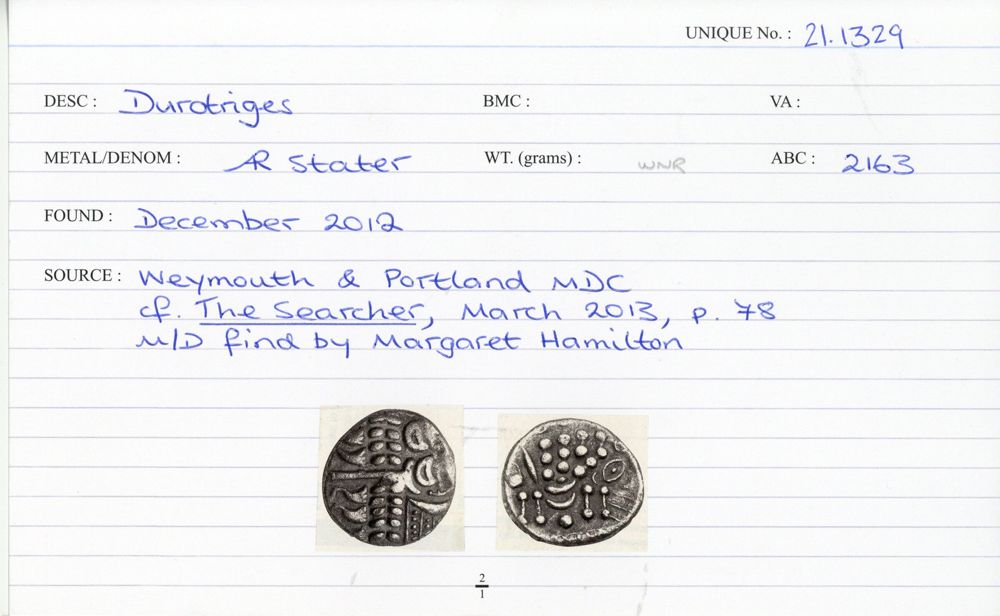 UNIQUE No. : 21.1329
DESC : Durotriges BMC : VA :
METAL/DENOM : AR Stater WT. (grams) : WNR ABC : 2163
FOUND : December 2012
SOURCE : Weymouth & Portland MDC
cf. The Searcher, March 2013, p. 78
M/D find by Margaret Hamilton
2
1